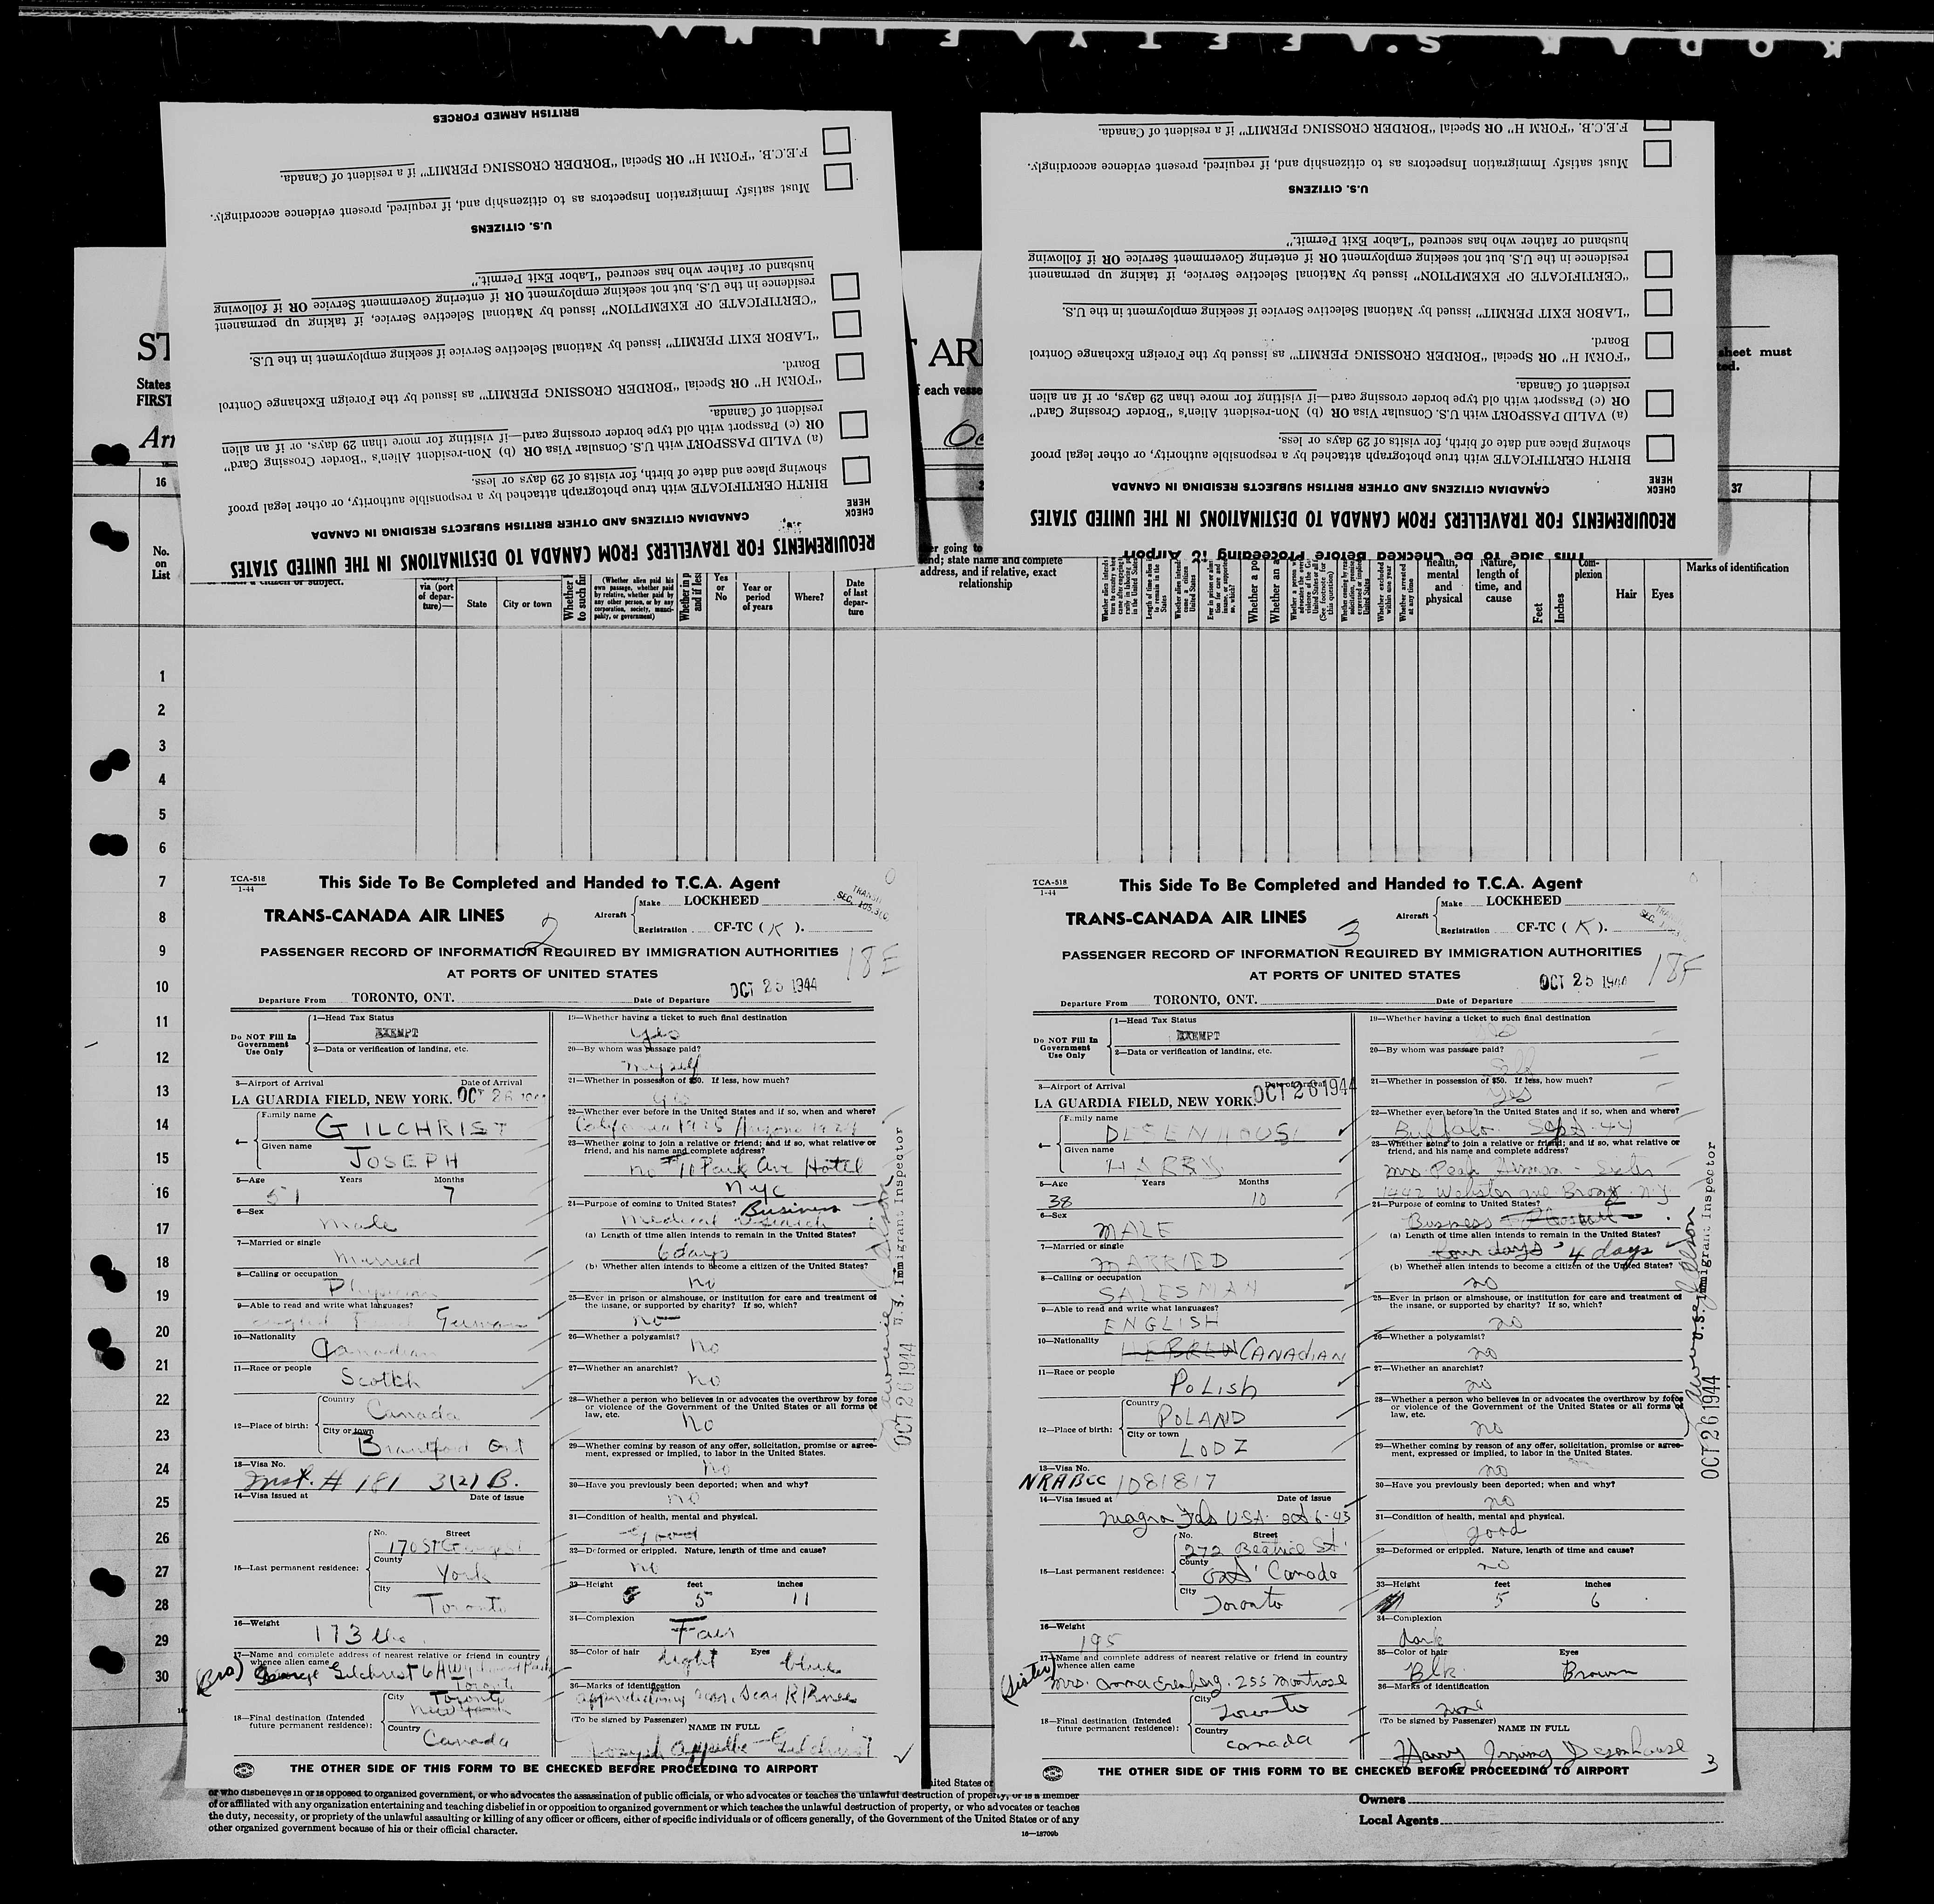 KODAK S.AFETY FILM
BRITISH ARMED FORCES
F.E.C.B. "FORM H" OR Special "BORDER CROSSING PERMIT" if a resident of Canada.
Must satisfy Immigration Inspectors as to citizenship and, if required, present evidence accordingly.
U.S. CITIZENS
husband or father who has secured "Labor Exit Permit."
residence in the U.S. but not seeking employment OR if entering Government Service OR if following
"CERTIFICATE OF EXEMPTION" issued by National Selective Service, if taking up permanent
"LABOR EXIT PERMIT" issued by National Selective Service if seeking employment in the U.S.
Board.
"FORM H" OR Special "BORDER CROSSING PERMIT" as issued by the Foreign Exchange Control
resident of Canada.
OR (c) Passport with old type border crossing card—if visiting for more than 29 days, or if an alien
(a) VALID PASSPORT with U.S. Consular Visa OR (b) Non-resident Alien's "Border Crossing Card"
showing place and date of birth, for visits of 29 days or less.
BIRTH CERTIFICATE with true photograph attached by a responsible authority, or other legal proof
CHECK HERE
CANADIAN CITIZENS AND OTHER BRITISH SUBJECTS RESIDING IN CANADA
REQUIREMENTS FOR TRAVELLERS FROM CANADA TO DESTINATIONS IN THE UNITED STATES
F.E.C.B. "FORM H" OR Special "BORDER CROSSING PERMIT" if a resident of Canada.
Must satisfy Immigration Inspectors as to citizenship and, if required, present evidence accordingly.
U.S. CITIZENS
husband or father who has secured "Labor Exit Permit."
residence in the U.S. but not seeking employment OR if entering Government Service OR if following
"CERTIFICATE OF EXEMPTION" issued by National Selective Service, if taking up permanent
"LABOR EXIT PERMIT" issued by National Selective Service if seeking employment in the U.S.
Board.
"FORM H" OR Special "BORDER CROSSING PERMIT" as issued by the Foreign Exchange Control
resident of Canada.
OR (c) Passport with old type border crossing card—if visiting for more than 29 days, or if an alien
(a) VALID PASSPORT with U.S. Consular Visa OR (b) Non-resident Alien's "Border Crossing Card"
showing place and date of birth, for visits of 29 days or less.
BIRTH CERTIFICATE with true photograph attached by a responsible authority, or other legal proof
CHECK HERE
CANADIAN CITIZENS AND OTHER BRITISH SUBJECTS RESIDING IN CANADA
REQUIREMENTS FOR TRAVELLERS FROM CANADA TO DESTINATIONS IN THE UNITED STATES
This Side To Be Checked Before Proceeding To Airport
ST
AR
States
FIRST
f each vesse
sheet must
16
37
No. on List
via (port of departure)—
State
City or town
(Whether alien paid his own passage, whether paid by relative, whether paid by any other person, or by any corporation, society, municipality, or government)
Yes or No
Year or period of years
Where?
Date of last departure
address, and if relative, exact relationship
health, mental and physical
Nature, length of time, and cause
Feet
Inches
Complexion
Hair
Eyes
Marks of identification
1
2
3
4
5
6
7
8
9
10
11
12
13
14
15
16
17
18
19
20
21
22
23
24
25
26
27
28
29
30
TCA-518
1-44
This Side To Be Completed and Handed to T.C.A. Agent
TRANS-CANADA AIR LINES
2
Aircraft
Make LOCKHEED
Registration CF-TC ( K ).
PASSENGER RECORD OF INFORMATION REQUIRED BY IMMIGRATION AUTHORITIES
AT PORTS OF UNITED STATES
18E
Departure From TORONTO, ONT. Date of Departure OCT 25 1944
Do NOT Fill In Government Use Only
1—Head Tax Status
EXEMPT
2—Data or verification of landing, etc.
3—Airport of Arrival Date of Arrival
LA GUARDIA FIELD, NEW YORK. OCT 26 1944
4— Family name
GILCHRIST
Given name
JOSEPH
5—Age Years Months
51 7
6—Sex
Male
7—Married or single
Married
8—Calling or occupation
Physician
9—Able to read and write what languages?
German
10—Nationality
Canadian
11—Race or people
Scotch
12—Place of birth: Country
Canada
City or town
Brantford Ont
13—Visa No.
Inst. # 181 3(2) B.
14—Visa issued at Date of issue
15—Last permanent residence: No. Street
170 St
County
York
City
Toronto
16—Weight
173 lbs.
17—Name and complete address of nearest relative or friend in country whence alien came
(Bro) George Gilchrist
Toronto
18—Final destination (Intended future permanent residence):
City
Toronto
New York
Country
Canada
19—Whether having a ticket to such final destination
Yes
20—By whom was passage paid?
Myself
21—Whether in possession of $50. If less, how much?
Yes
22—Whether ever before in the United States and if so, when and where?
California 1925
23—Whether going to join a relative or friend; and if so, what relative or friend, and his name and complete address?
no #10 Park Ave Hotel
NYC
24—Purpose of coming to United States? Business
Medical research
(a) Length of time alien intends to remain in the United States?
6 days
(b) Whether alien intends to become a citizen of the United States?
no
25—Ever in prison or almshouse, or institution for care and treatment of the insane, or supported by charity? If so, which?
no
26—Whether a polygamist?
no
27—Whether an anarchist?
no
28—Whether a person who believes in or advocates the overthrow by force or violence of the Government of the United States or all forms of law, etc.
no
29—Whether coming by reason of any offer, solicitation, promise or agreement, expressed or implied, to labor in the United States.
no
30—Have you previously been deported; when and why?
no
31—Condition of health, mental and physical.
Good
32—Deformed or crippled. Nature, length of time and cause?
no
33—Height feet inches
5 11
34—Complexion
Fair
35—Color of hair Eyes
Light blue
36—Marks of identification
scar R Knee
(To be signed by Passenger)
NAME IN FULL
Joseph Gilchrist
OCT 26 1944 U.S. Immigrant Inspector
THE OTHER SIDE OF THIS FORM TO BE CHECKED BEFORE PROCEEDING TO AIRPORT
TCA-518
1-44
This Side To Be Completed and Handed to T.C.A. Agent
TRANS-CANADA AIR LINES
3
Aircraft
Make LOCKHEED
Registration CF-TC ( K ).
PASSENGER RECORD OF INFORMATION REQUIRED BY IMMIGRATION AUTHORITIES
AT PORTS OF UNITED STATES
18F
Departure From TORONTO, ONT. Date of Departure OCT 25 1944
Do NOT Fill In Government Use Only
1—Head Tax Status
EXEMPT
2—Data or verification of landing, etc.
3—Airport of Arrival Date of Arrival
LA GUARDIA FIELD, NEW YORK. OCT 26 1944
4— Family name
DESENHOUSE
Given name
HARRY
5—Age Years Months
38 10
6—Sex
MALE
7—Married or single
MARRIED
8—Calling or occupation
SALESMAN
9—Able to read and write what languages?
ENGLISH
10—Nationality
HEBREW CANADIAN
11—Race or people
POLISH
12—Place of birth: Country
POLAND
City or town
LODZ
13—Visa No.
NRABCC 1081817
14—Visa issued at Date of issue
Niagra Fds USA Oct 6-43
15—Last permanent residence: No. Street
272 Beatrice St
County
Ont Canada
City
Toronto
16—Weight
195
17—Name and complete address of nearest relative or friend in country whence alien came
(Sister) Mrs. 255 Montrose
18—Final destination (Intended future permanent residence):
City
Toronto
Country
Canada
19—Whether having a ticket to such final destination
Yes
20—By whom was passage paid?
Self
21—Whether in possession of $50. If less, how much?
Yes
22—Whether ever before in the United States and if so, when and where?
Buffalo Sept. 44
23—Whether going to join a relative or friend; and if so, what relative or friend, and his name and complete address?
Mrs - Sister
1442 Webster ave Bronx N.Y.
24—Purpose of coming to United States?
Business
(a) Length of time alien intends to remain in the United States?
four days 4 days
(b) Whether alien intends to become a citizen of the United States?
no
25—Ever in prison or almshouse, or institution for care and treatment of the insane, or supported by charity? If so, which?
no
26—Whether a polygamist?
no
27—Whether an anarchist?
no
28—Whether a person who believes in or advocates the overthrow by force or violence of the Government of the United States or all forms of law, etc.
no
29—Whether coming by reason of any offer, solicitation, promise or agreement, expressed or implied, to labor in the United States.
no
30—Have you previously been deported; when and why?
no
31—Condition of health, mental and physical.
good
32—Deformed or crippled. Nature, length of time and cause?
no
33—Height feet inches
5 6
34—Complexion
dark
35—Color of hair Eyes
Blk. Brown
36—Marks of identification
none
(To be signed by Passenger)
NAME IN FULL
Harry Irving Desenhouse
3
OCT 26 1944 U.S. Immigrant Inspector
THE OTHER SIDE OF THIS FORM TO BE CHECKED BEFORE PROCEEDING TO AIRPORT
nited States or
or who disbelieves in or is opposed to organized government, or who advocates the assassination of public officials, or who advocates or teaches the unlawful destruction of property, or is a member
of or affiliated with any organization entertaining and teaching disbelief in or opposition to organized government or which teaches the unlawful destruction of property, or who advocates or teaches
the duty, necessity, or propriety of the unlawful assaulting or killing of any officer or officers, either of specific individuals or of officers generally, of the Government of the United States or of any
other organized government because of his or their official character.
16—18709b
Owners
Local Agents